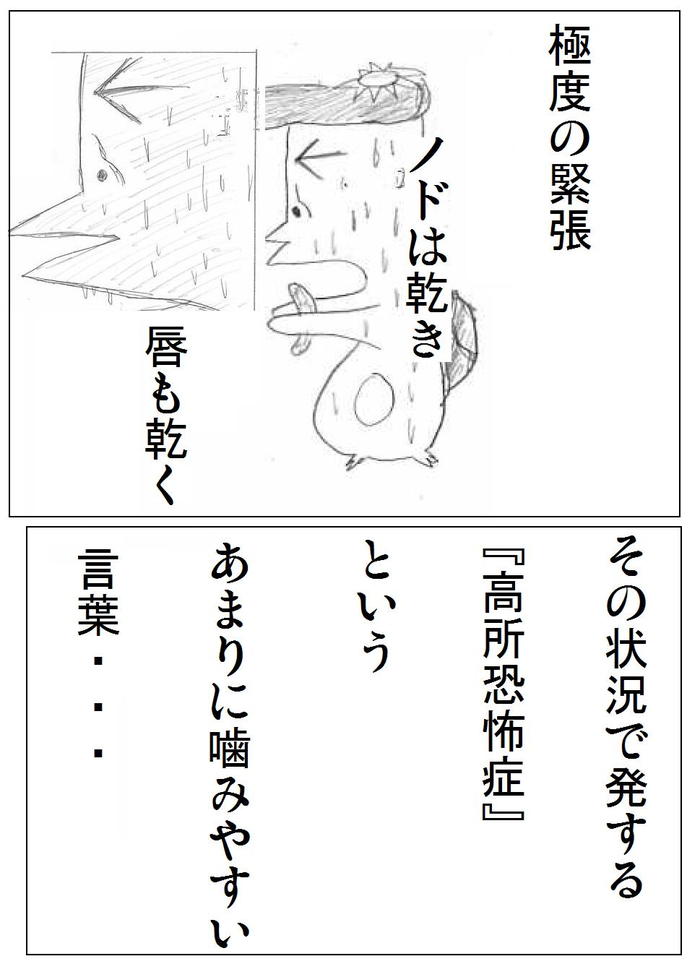 極度の緊張
ノドは乾き
唇も乾く
その状況で発する
『高所恐怖症』
という
あまりに噛みやすい
言葉・・・